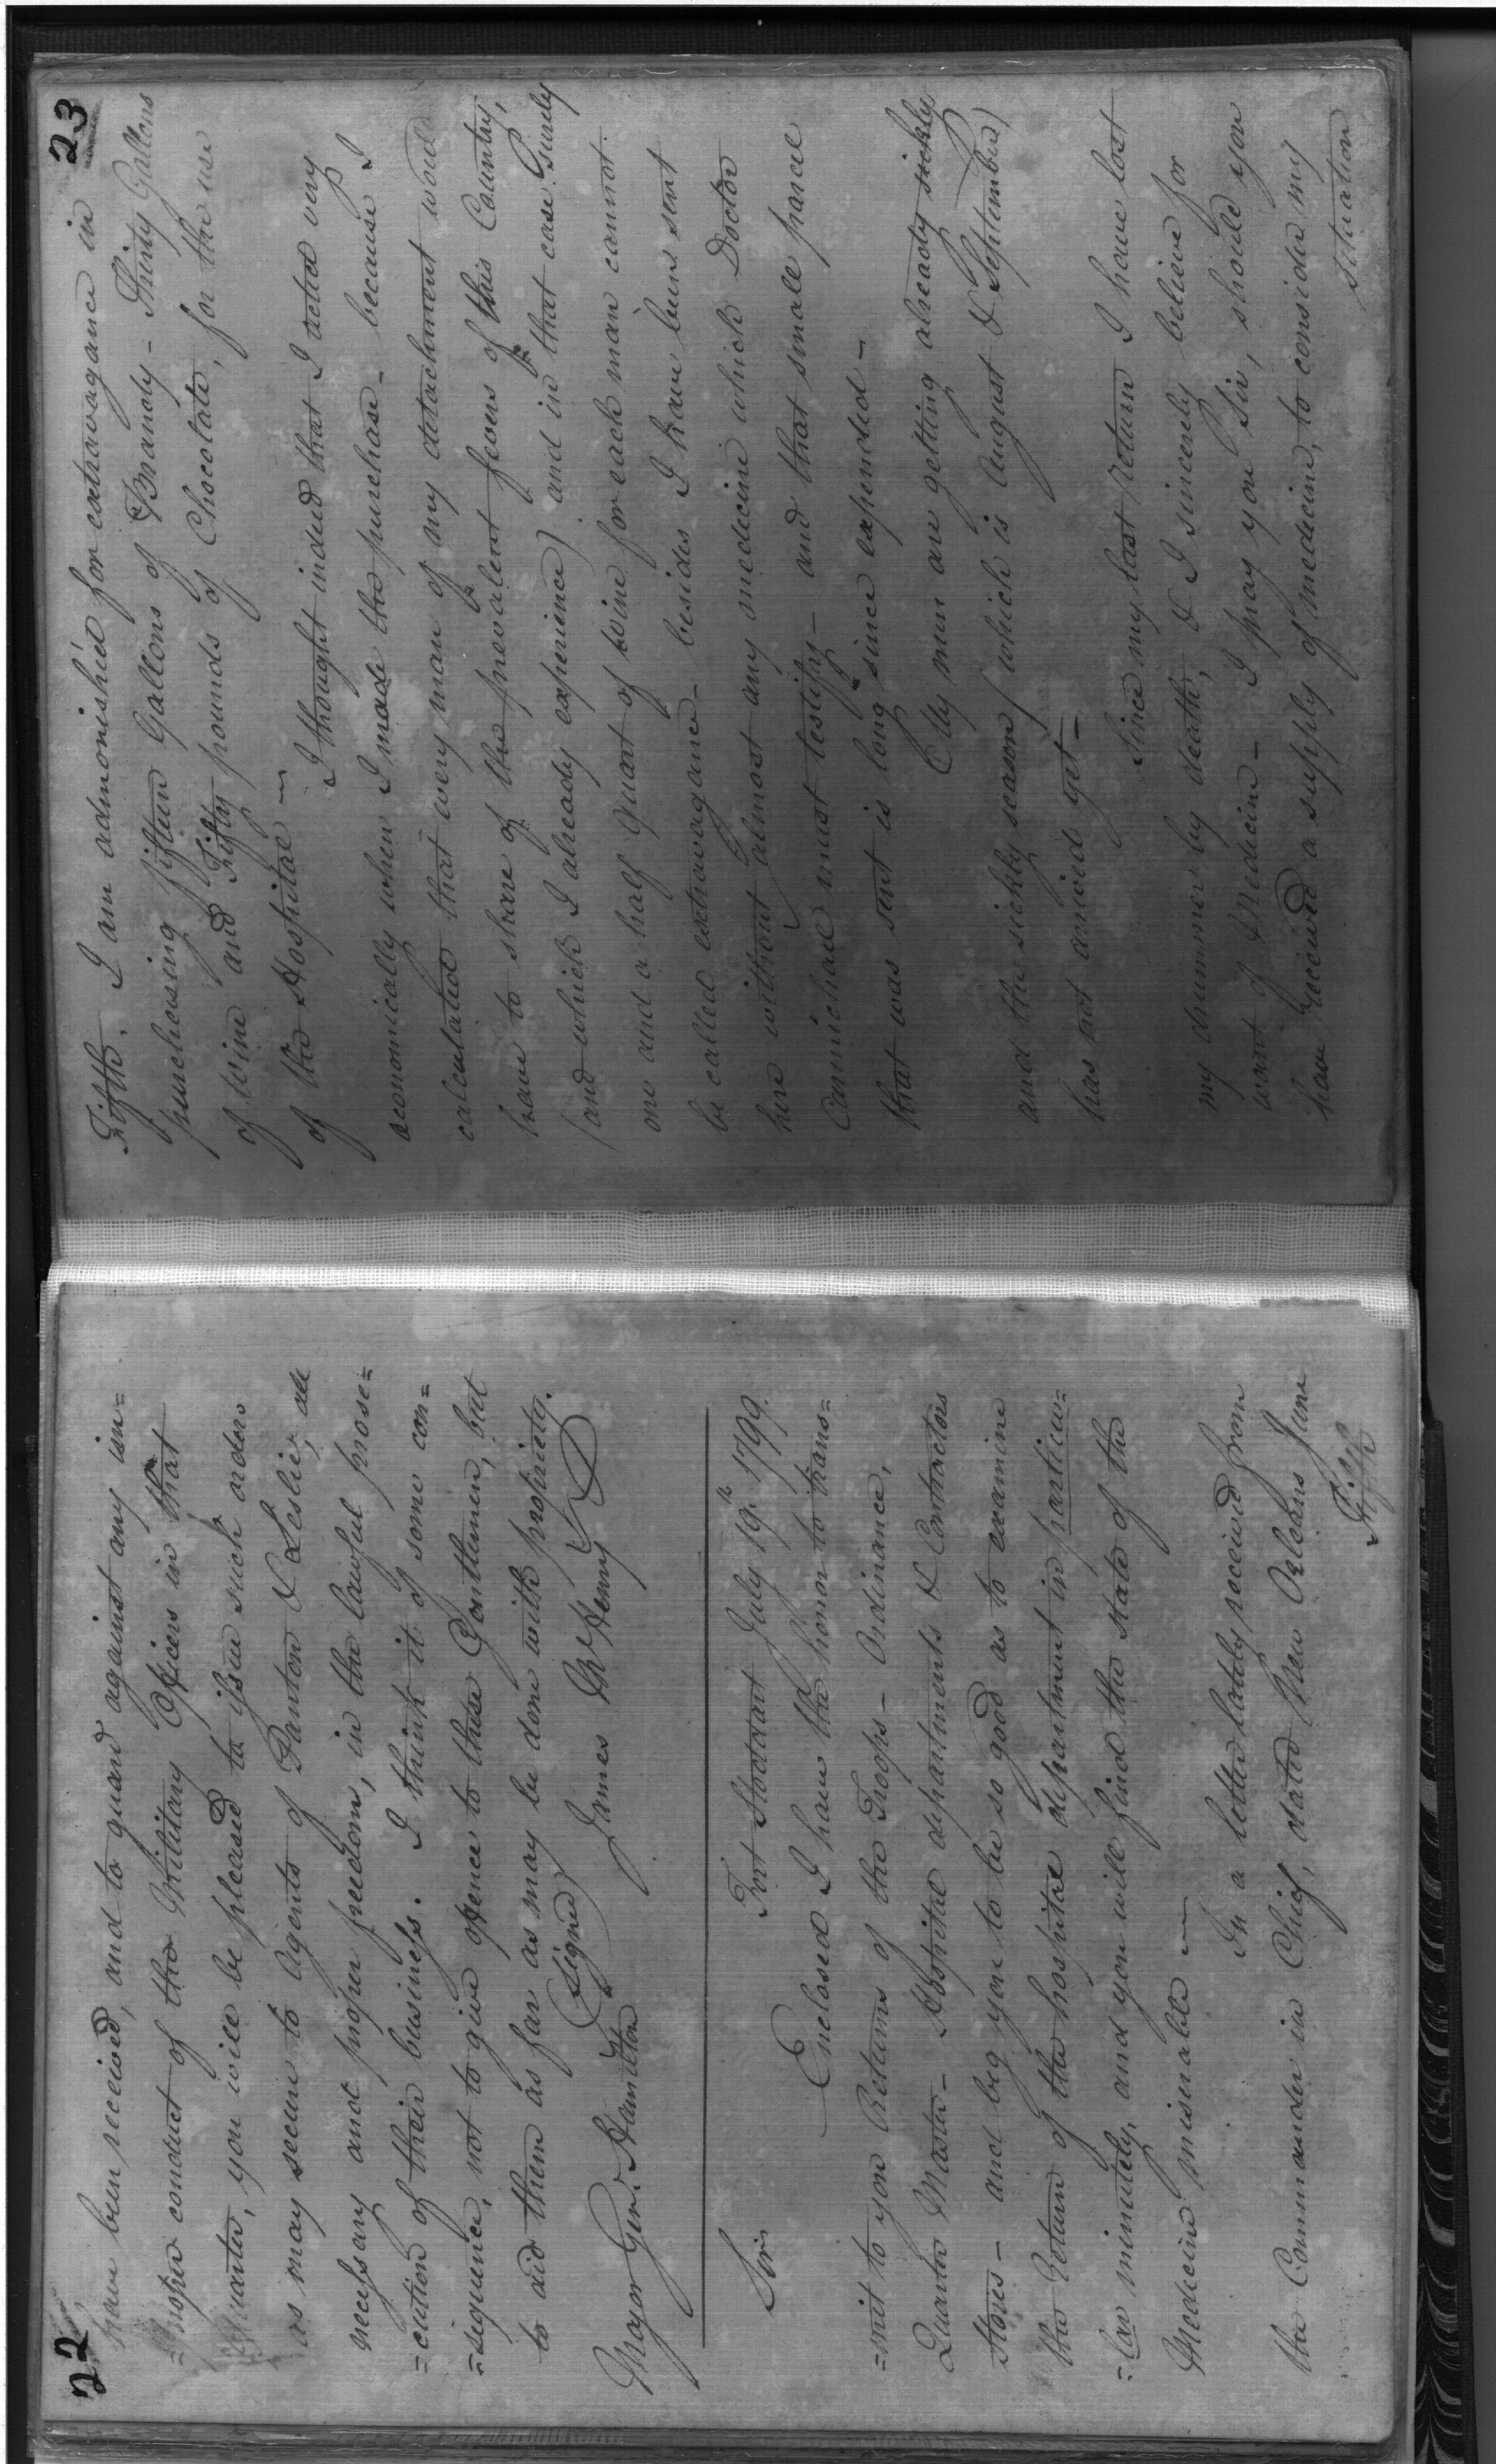 22
have been received, and to guard against any im=
=proper conduct of the Military Officers in that
quarter, you will be pleased to issue such orders
as may secure to Agents of Panton & Leslie, all
necessary and proper freedom, in the lawful prose=
=cution of their business. I think it of some con=
=sequence, not to give offence to these Gentlemen, but
to aid them as far as may be done with propriety.
(signed) James McHenry
Major Gen. Hamilton
Fort Stoddart July 19th. 1799.
Sir
Enclosed I have the honor to trans=
=mit to you Returns of the Troops – Ordinance,
Quarter Master – Hospital departments & Contractors
stores – and beg you to be so good as to examine
the Return of the hospital department in particu=
=lar minutely, and you will find the state of the
Medecine miserable —
In a letter lately received from
the Commander in Chief, dated New Orleans June
Fifth
23
Fifth. I am admonished for extravagance in
purchasing fifteen Gallons of Brandy – Thirty Gallons
of wine and Fifty pounds of Chocolate, for the use
of the Hospital —
I thought indeed that I acted very
economically when I made the purchase – because I
calculated that every man of my detachment would
have to share of the prevalent fevers of this Country,
(and which I already experience) and in that case surely
one and a half Quart of wine for each man cannot
be called extravagance – besides I have been sent
here without almost any medecine which Doctor
Carmichael must testify – and that small parcel
that was sent is long since expended –
My men are getting already sickly
and the sickly season (which is August & September)
has not arrived yet –
Since my last return I have lost
my drummer by death, & I sincerely believe for
want of Medicine – I pray you Sir, should you
have Received a supply of medecine, to consider my
situation